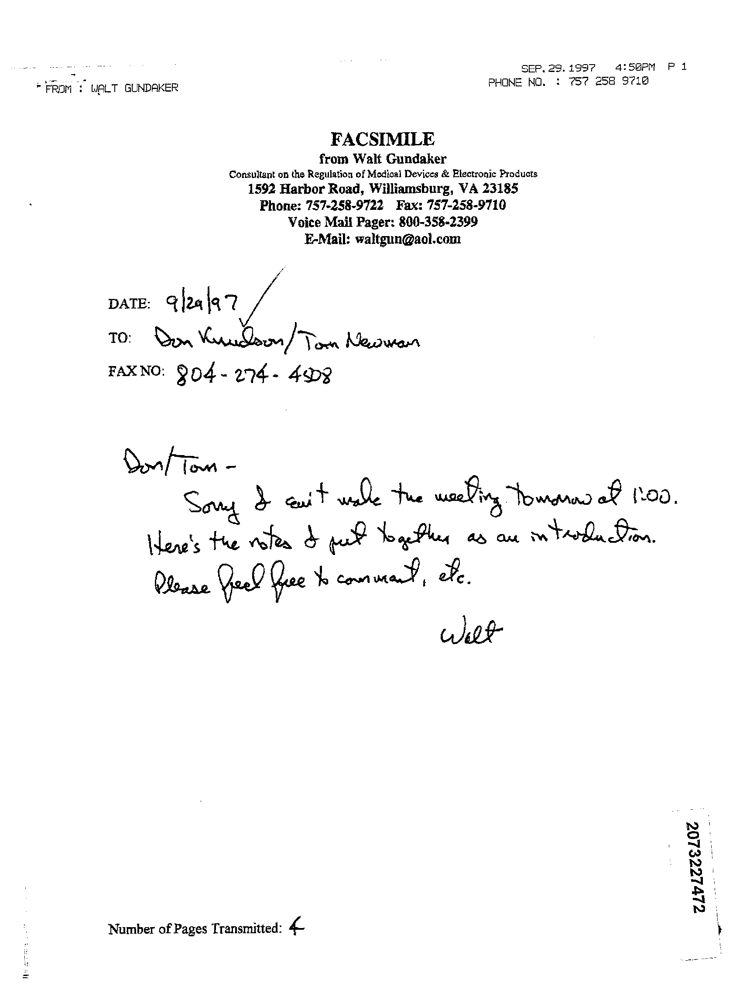 SEP.29.1997 4:50PM P 1
FROM : WALT GUNDAKER
PHONE NO. : 757 258 9710
FACSIMILE
from Walt Gundaker
Consultant on the Regulation of Medical Devices & Electronic Products
1592 Harbor Road, Williamsburg, VA 23185
Phone: 757-258-9722 Fax: 757-258-9710
Voice Mail Pager: 800-358-2399
E-Mail: waltgun@aol.com
DATE: 9/29/97
TO: Don Knudson/Tom Newman
FAX NO: 804-274-
Don/Tom -
Sorry I can't make the meeting tomorrow at 1:00.
Here's the notes I put together as an introduction.
Please feel free to comment, etc.
Walt
2073227472
Number of Pages Transmitted: 4